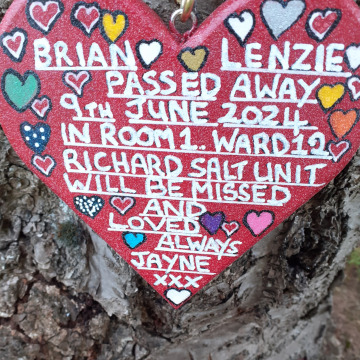 BRIAN LENZIE
PASSED AWAY
9TH JUNE 2024
IN ROOM 1. WARD 12
RICHARD SALT UNIT
WILL BE MISSED
AND
LOVED
ALWAYS
JAYNE
XXX